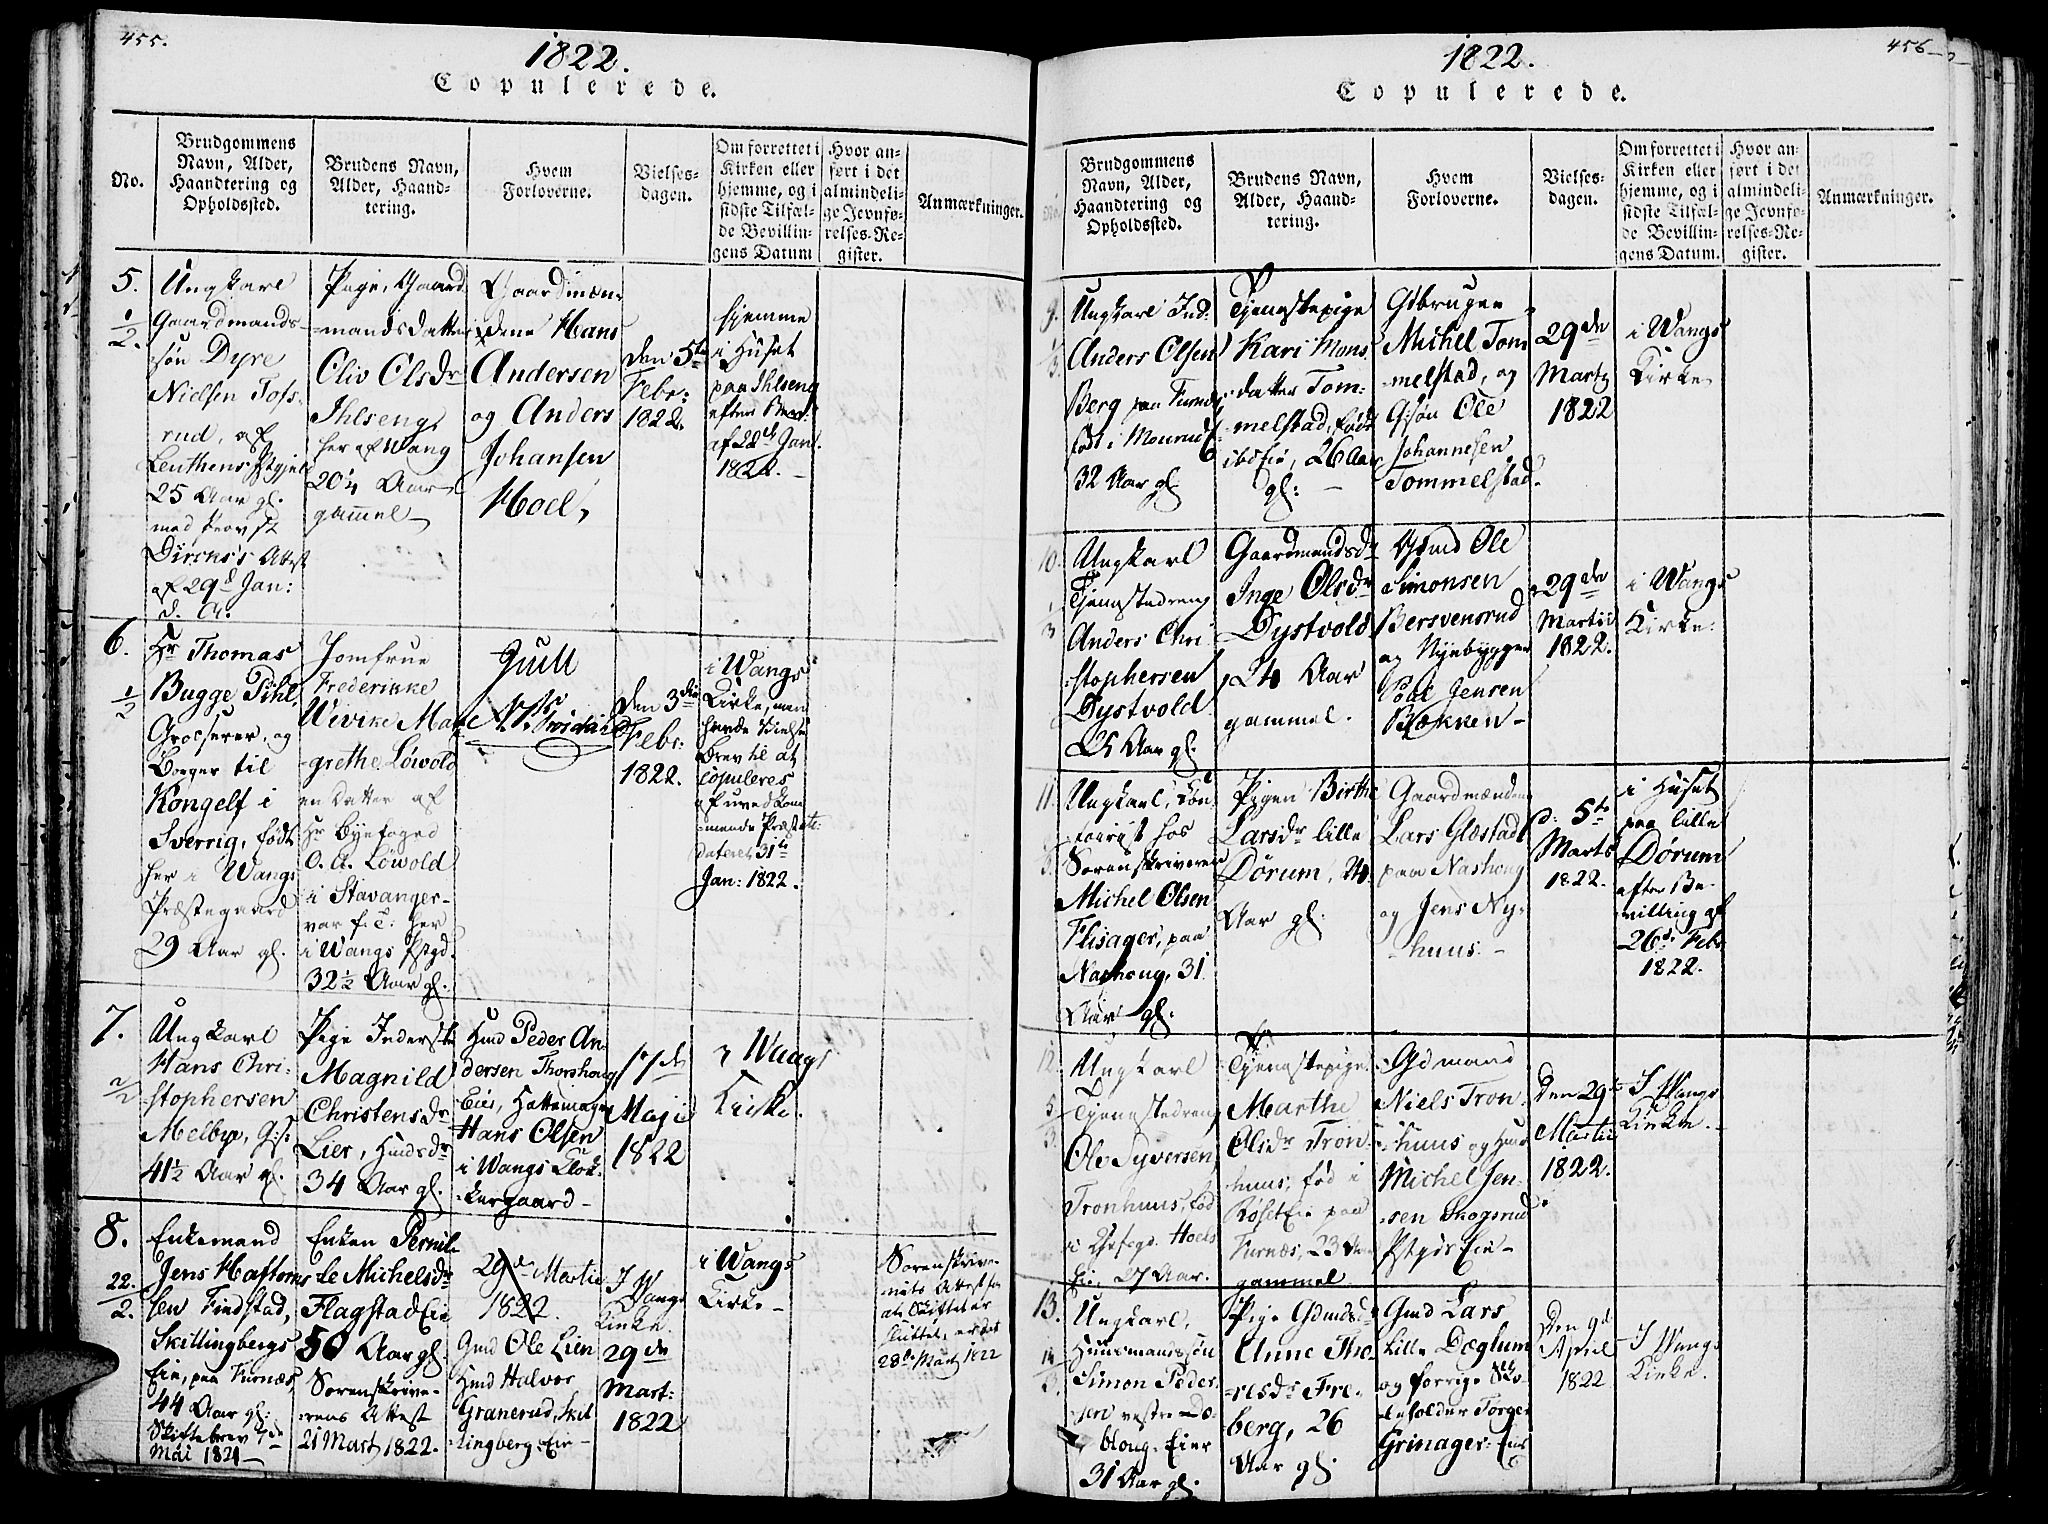 455.
1822.
Copulerede.
No.
Brudgommens
Navn, Alder,
Haandtering og
Opholdssted.
Brudens Navn,
Alder, Haand-
tering.
Hvem
Forloverne.
Vielses-
dagen.
Om forrettet i
Kirken eller
hjemme, og i
sidste Tilfæl-
de Bevillin-
gens Datum
Hvor an-
ført i det
almindeli-
ge Jevnfø-
relses-Re-
gister.
Anmærkninger.
5.
1/2
Ungkarl
Gaardmands-
søn Dyre
Nielsen Tofs-
rud, af
Leuthens Pgjeld
25 Aar gl.
med Provst
Dircks's Attest
af 29d Jan:
d. A.
Pige, Gaard
mandsdatter
Oliv Olsdr
Ihlseng
her af Wang
20 1/4 Aar
gammel
Gaardmæn-
dene Hans
Andersen
og Anders
Johansen
Hoel,
den 5te
Febr:
1822.
hjemme
i Huset
paa Ihlseng
efter Bev:
af 22d Jan.
1822. –
6.
1/2
Hr Thomas
Bugge Pihl,
Grosserer, og
Borger til
Kongelf i
Sverrig, født
her i Wangs
Præstegaard
29 Aar gl.
Jomfrue
Frederikke
Wivike Mar-
grethe Löwold
en Datter af
Hr Byefoged
O. A. Löwold
i Stavanger
var f. T. her
i Wangs Pstgd.
32½ Aar gl.
Juell
den 3die
Febr:
1822.
i Wangs
Kirke, men
havde Vielse
Brev til at
copuleres
af uvedkom
mende Præst
dateret 31te
Jan: 1822.
7.
2/2
Ungkarl
Hans Chri-
stophersen
Melbye, G:s:
41½ Aar gl.
Pige Inderste
Magnild
Christensdr
Lier, Husdsdr
34 Aar gl.
Husmd Peder An-
dersen Thorshoug
Eier, Hattemager
Hans Olsen
i Wangs Klok-
kergaard –
17de
Maji
1822
i Wangs
Kirke.
8.
22/2.
Enkemand
Jens Haftorn
sen Findstad,
Skillingbergs
Eie, paa Furnæs,
44 Aar gl:
Skiftebrev
Mai 1821 –
Enken Pernil-
le Michelsdr
FlagstadEie
50 Aar gl.
Sorenskrive-
rens Attest
21 Mart 1822.
29de Martii
1822.
Gmd Ole Lien
Hmd Halvor
Granerud, Skil
lingberg:Eie –
I Wangs
Kirke.
29de
Mart:
1822
i Wangs
Kirke –
Sorenskrive-
rens Attest for
at Skiftet er
sluttet, er dat
28de Marts 1822
456
1822.
Copulerede.
No.
Brudgommens
Navn, Alder,
Haandtering og
Opholdssted.
Brudens Navn,
Alder, Haand-
tering.
Hvem
Forloverne.
Vielses-
dagen.
Om forrettet i
Kirken eller
hjemme, og i
sidste Tilfæl-
de Bevillin-
gens Datum.
Hvor an-
ført i det
almindeli-
ge Jevnfø-
relses-Re-
gister.
Anmærkninger.
9.
1/3.
Ungkarl Ind.
Anders Olsen
Berg paa Furnæs
født i
32 Aar gl.
Tjenestepige
Kari Mons
datter Tom-
melstad, født
ibd Eie, 26 Aar
gl: –
Gdbruger
Michel Tom
melstad, og
G:søn Ole
Johannesen
Tommelstad.
29de
Marty
1822
i Wangs
Kirke
10.
1/3
Ungkarl
Tjenestedreng
Anders Chri-
stophersen
Dystvold
25 Aar gl.
Gaardmandsdr
Inge Olsdr
Dystvold
24 Aar
gammel.
Gdmd Ole
Simonsen
Bersvensrud
og Nyebygger
Poel Jensen
Bækken –
29de
Martii
1822.
i Wangs
Kirke:
11.
Ungkarl, Con-
toirist hos
Sorenskriveren
Michel Olsen
Flisager, paa
Nashoug, 31
Aar gl.
Pigen Birthe
Larsdr lille
Dørum, 24
Aar gl.
Gaardmændene
Lars Glæstad
paa Nashoug
og Jens Ny-
huus. –
d: 5te
Marts
1822.
i Huset
paa lille
Dørum
efter Be-
villing af
26de Febr.
1822.
12.
5/3.
Ungkarl
Tjenestedreng
Ole Syversen
Tronhuus, fød
i
Eie, 27 Aar.
Tjenestepige
Marthe
Olsdr Tron-
huus, fød i
Eie paa
Furnæs, 23 Aar
gammel
Gdmand
Niels Tron-
huus og Husmd
Michel Jen-
sen Skogsrud
PstgdsEie –
Den 29de
Martii
1822.
I Wangs
Kirke.
13.
14/3.
Ungkarl,
Huusmandssøn
Simon Peder-
sen vestre Dæ-
hloug-Eier
31 Aar gl.
Pige Gdmdsdr
Anne Tho-
resdr Fre-
berg, 26
Aar gl.
Gmd Lars
Lille Dæglum
og forrige Sko-
leholder Torger
Grinager-Eie
Den 9de
April
1822
I Wangs
Kirke.